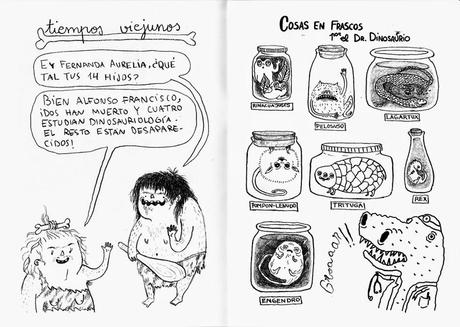 tiempos viejunos
EY FERNANDA AURELIA, ¿QUÉ
TAL TUS 14 HIJOS?
BIEN ALFONSO FRANCISCO,
¡DOS HAN MUERTO Y CUATRO
ESTUDIAN DINOSAURIOLOGÍA.
EL RESTO ESTAN DESAPARE-
CIDOS!
COSAS EN FRASCOS
por el DR. DINOSAURIO
PELOSASO
LAGARTUX
POMPON-LANUDO
TRITUGA
REX
ENGENDRO
Groaaar!